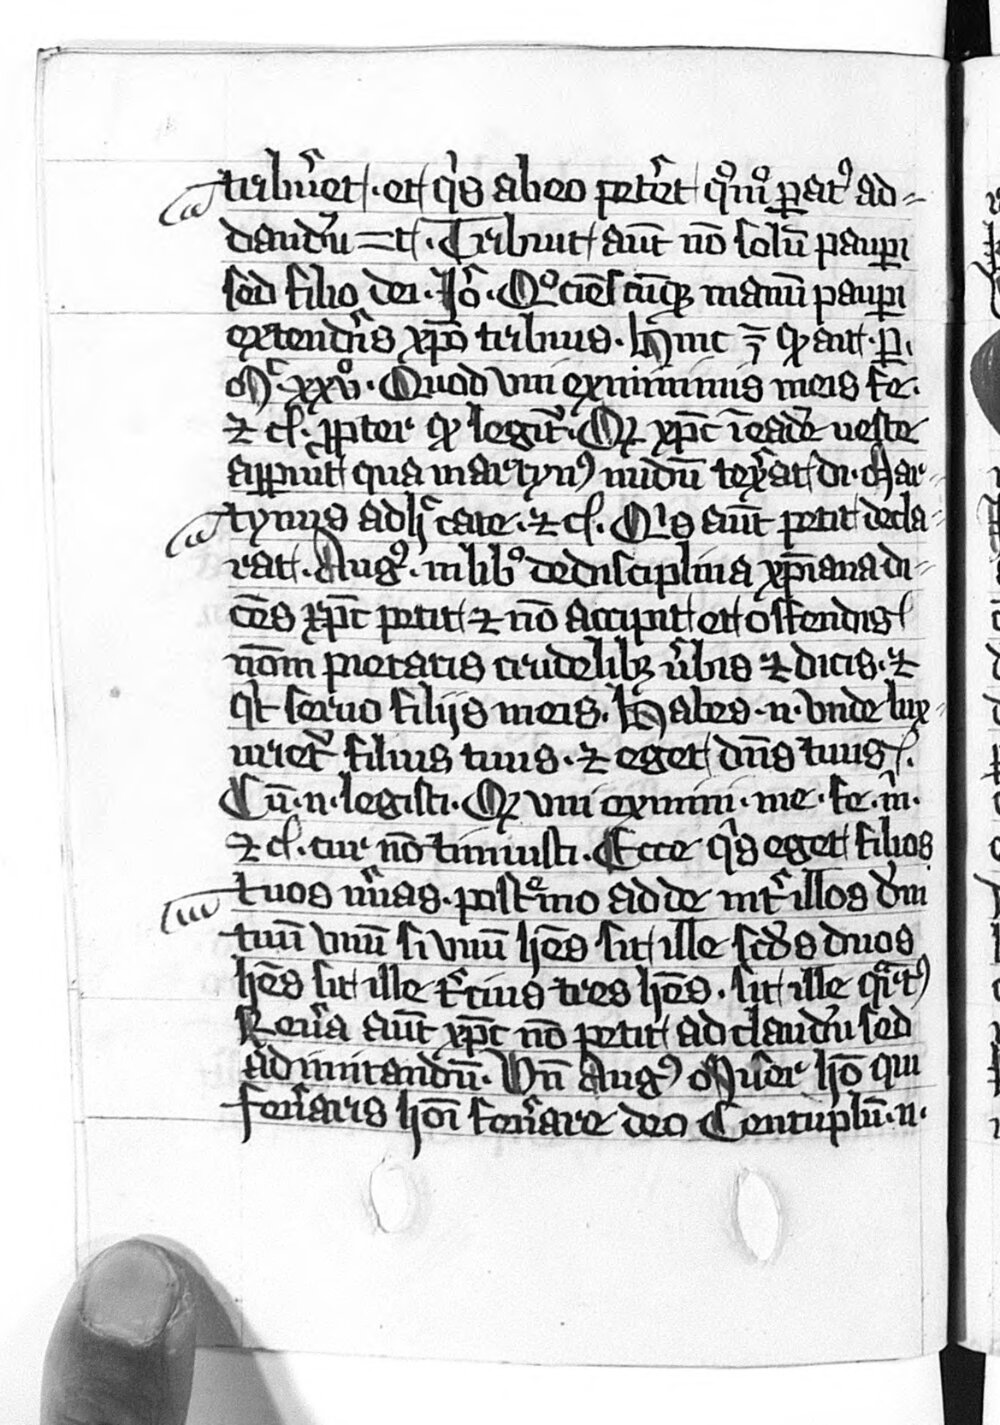 tribueret . et q̇s ab eo peteret q̊m̊ parat⁹ ad-
dandū t . Tribuit aūt nō solū paupi
sed filio dei . Jo . Quociēscūq; manū paupi
extendis xp̄o tribuis . Hinc ē qd ait
Mͭ xxv . Quod vni ex minimis meis fe .
⁊ cͭ . ppter qd legit̄ . Qz xp̄c ī eadē ueste
apparuit qua martyn⁹ nudū texerat di . Mar-
tynus adhͨ cate . ⁊ cͭ . Qls aūt petit decla-
rat . Aug⁹ . in lib̊ de disciplina xp̄iana di-
cēs xp̄c petit ⁊ nō accipit et ostendis
nom̄ pietatis crudelibz u̇bis ⁊ dicis . ⁊
qͭ seruo filijs meis . Habes . n . vnde lux-
uriet̄ filius tuus . ⁊ eget dn̄s tuus .
Cū . n . legisti . Qz vni ex mini . me . fe . m̄ .
⁊ cͭ . cur nō timuisti . Ecce q̇s eget filios
tuos nūas . postͤmo adde int̄ illos dn̄i
tuū vnū si vnū hēs sit ille scd̄s duos
hēs sit ille t̄cius tres hēs . sit ille q̈rt⁹
Reu̇a aūt xp̄c nō petit ad dandū sed
ad imitandū . Vn̄ Aug⁹ Miser hō qui
fen̄aris hōi fen̄are deo Centuplū . n .